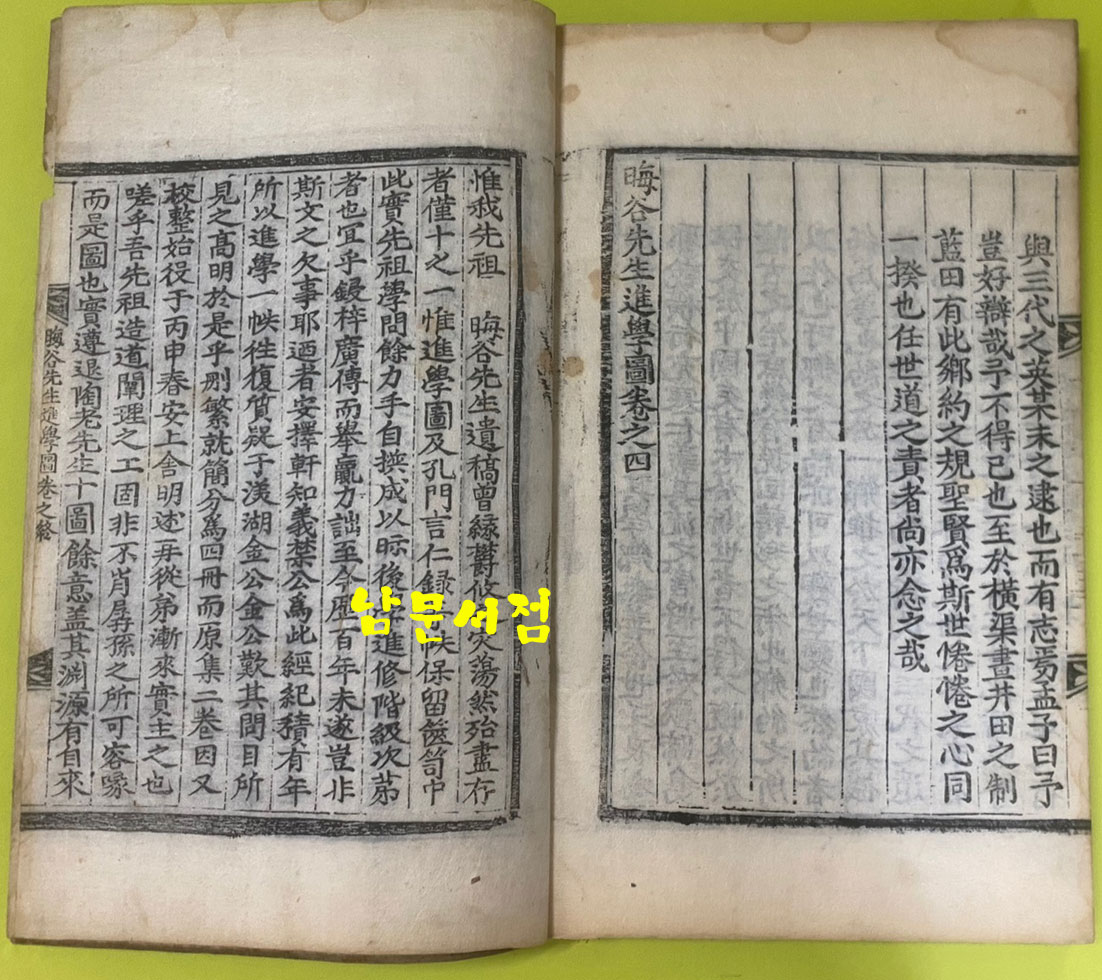 與三代之英某未之逮也而有志焉孟子曰予
豈好辯哉予不得已也至於橫渠畫井田之制
藍田有此鄉約之規聖賢爲斯世惓惓之心同
一揆也任世道之責者尚亦念之哉
晦谷先生進學圖卷之四
惟我先祖 晦谷先生遺稿曾緣欝攸災蕩然殆盡存
者僅十之一惟進學圖及孔門言仁録帙保留篋笥中
此實先祖學問餘力手自撰成以晾後進修階級次第
者也宜乎鋟梓廣傳而擧羸力詘至今歷百年未遂豈非
斯文之欠事耶迺者安擇軒知義禁公爲此經紀積有年
所以進學一帙徃復質疑于渼湖金公金公歎其問目所
見之高明於是乎刪繁就簡分爲四冊而原集二卷因又
校整始役于丙申春安上舍明述再從弟漸來實主之也
嗟乎吾先祖造道闡理之工固非不肖孱孫之所可容喙
而是圖也實遵退陶老先生十圖餘意盖其淵源有自來
晦谷先生進學圖 卷之終
남문서점